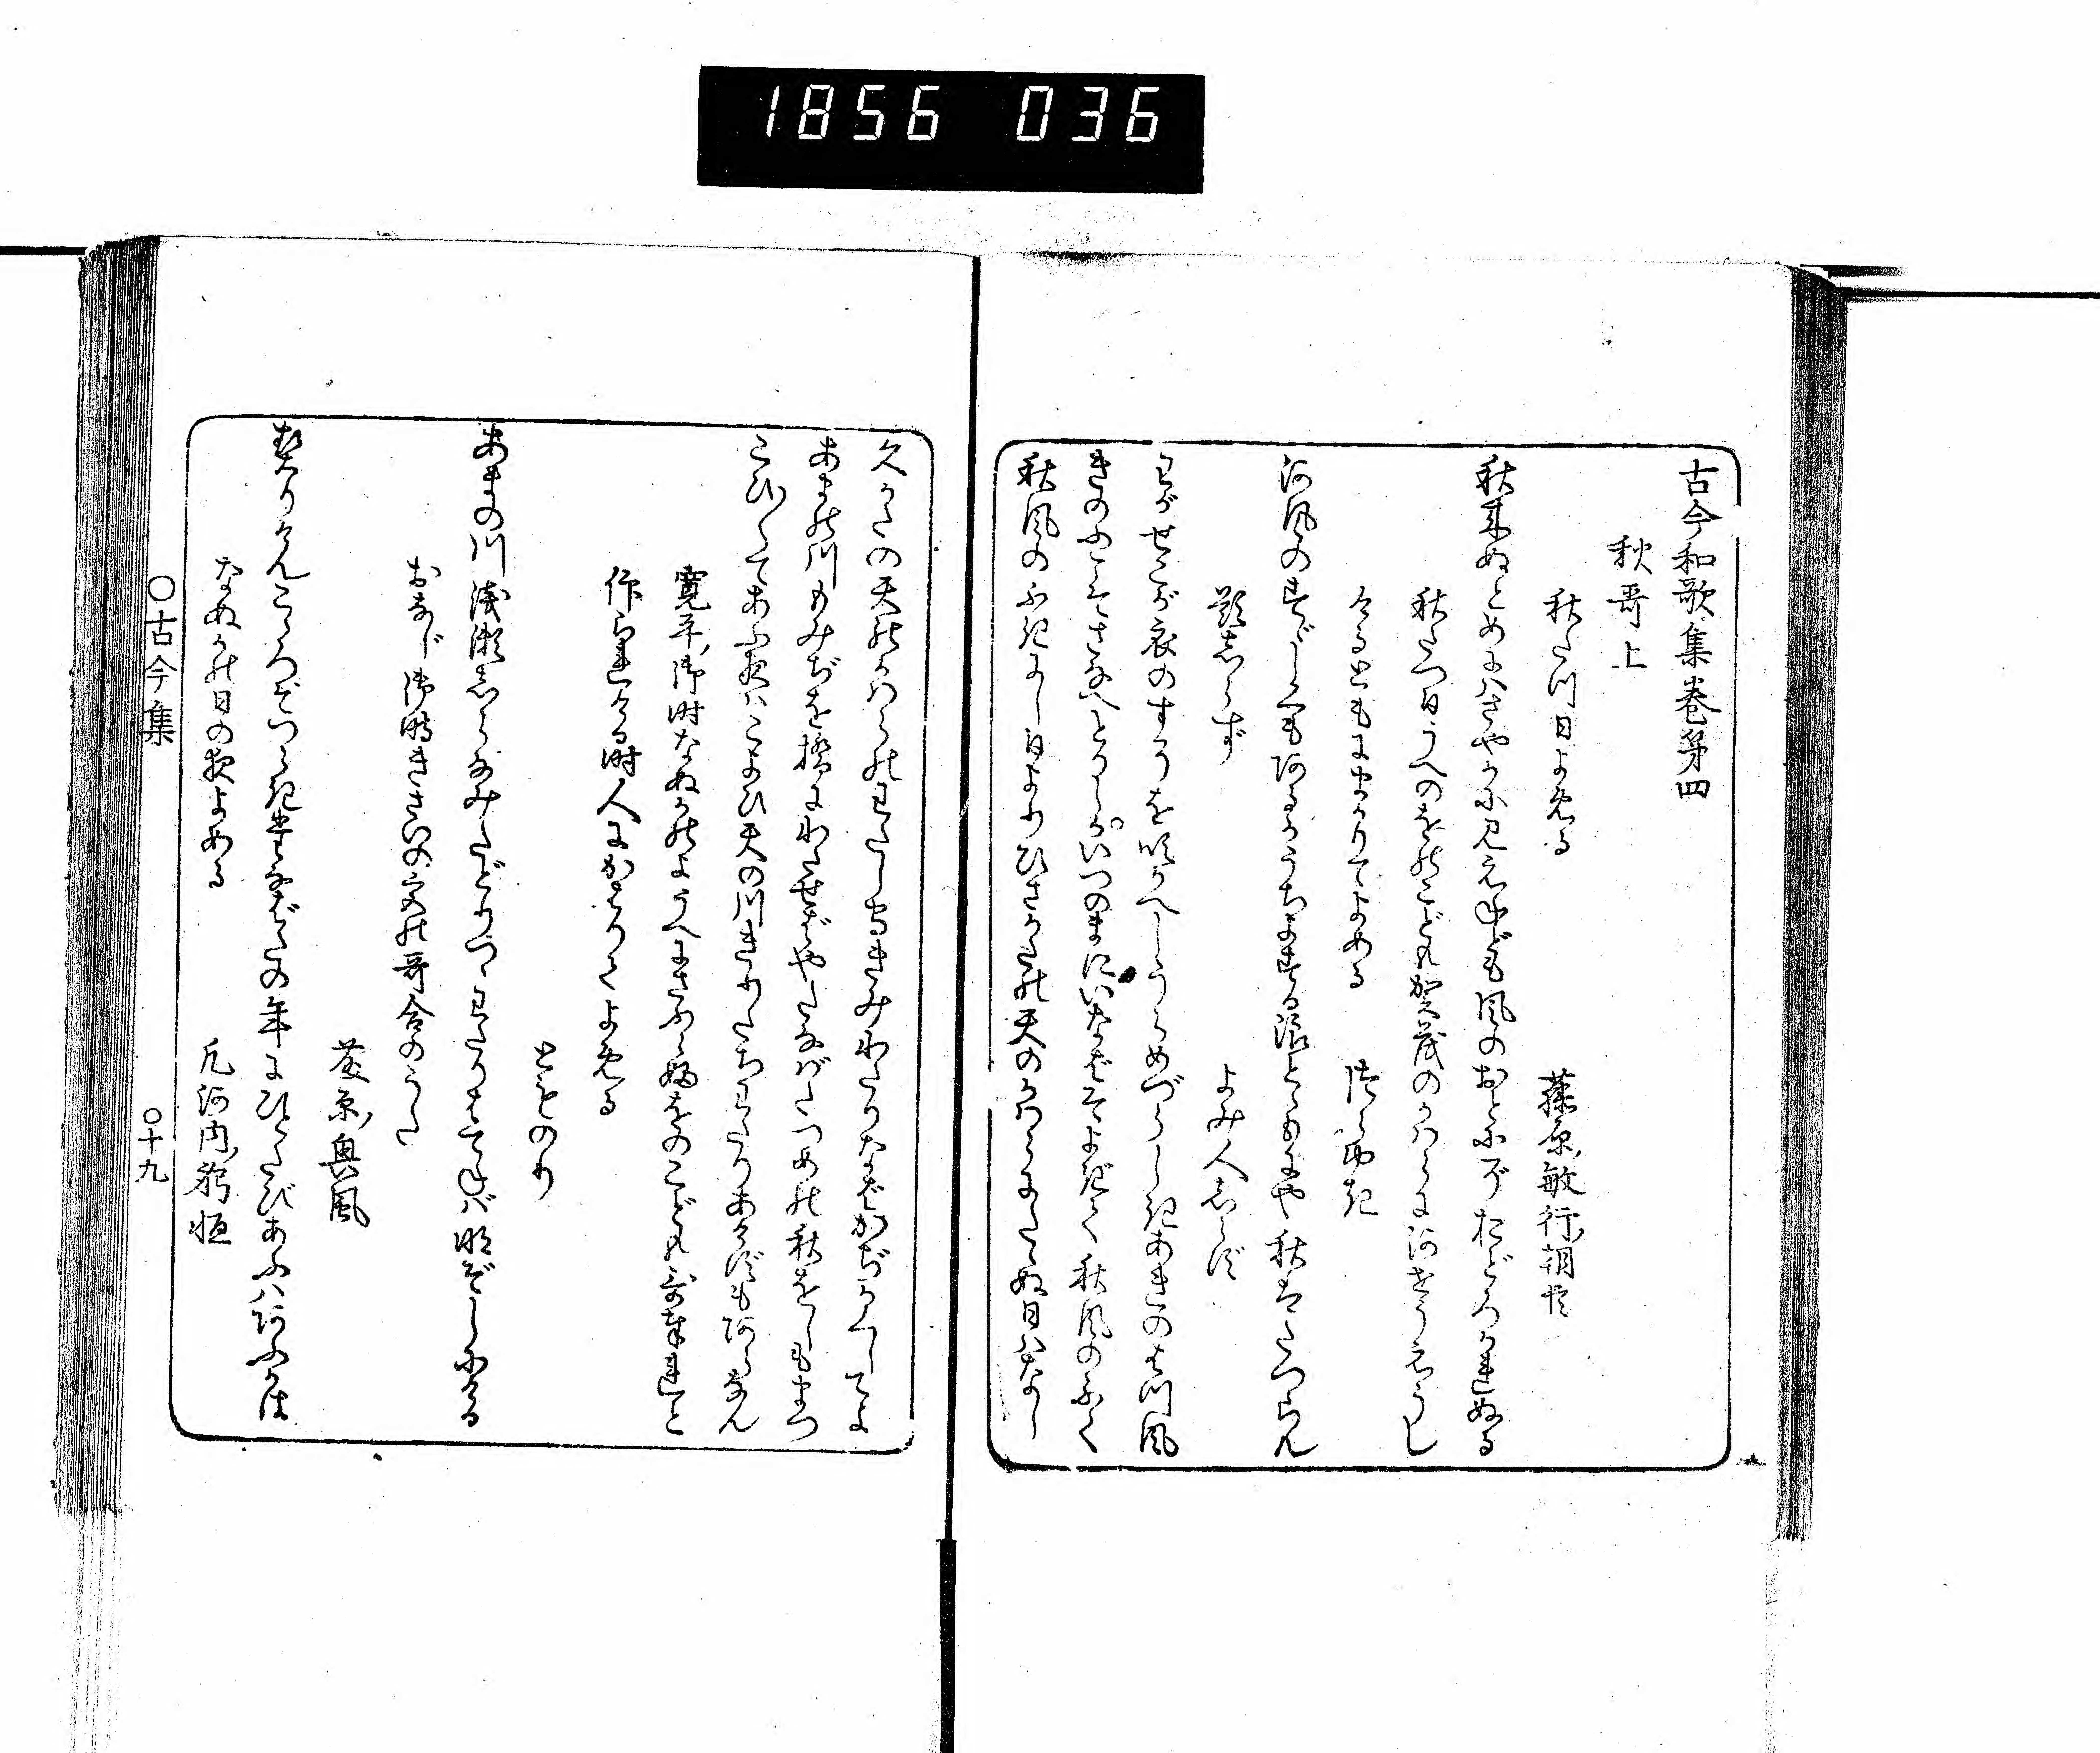 1856 036
古今和歌集巻第四
秋哥上
秋たつ日よめる
藤原敏行朝臣
秋来ぬとめにはさやかに見えねども風のおとにぞおどろかれぬる
秋たつ日うへのをのこども賀茂のかはらに河せうえうし
けるともにまかりてよめる
つらゆき
河風のすゞしくもあるかうちよする浪とゝもにや秋はたつらん
題しらず
よみ人しらず
わがせこが衣のすそを吹かへしうらめづらしきあきのはつ風
きのふこそさなへとりしかいつのまにいなばそよぎて秋風のふく
秋風のふきにし日よりひさかたの天のかはらにたゝぬ日はなし
久かたの天のかはらのわたしもりきみわたりなばかぢかくしてよ
あまの川もみぢを橋にわたせばやたなばたつめの秋をしもまつ
こひ〳〵てあふ夜はこよひ天の川きりたちわたりあけずもあらなん
寛平御時なぬかのようへにさふらふをのこども哥奉れと
作られける時人にかはりてよめる
とものり
あまの川浅瀬しらなみたどりつゝわたりはてねば明ぞしにける
おなじ御時きさいの宮の哥合のうた
藤原興風
契りけんこゝろぞつらきたなばたの年にひとたびあふはあふかは
なぬかの日の夜よめる
凡河内躬恒
○古今集
○十九